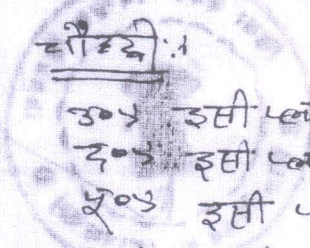 चौहद्दी :-
उ०- इसी
द०- इसी
पू०- इसी